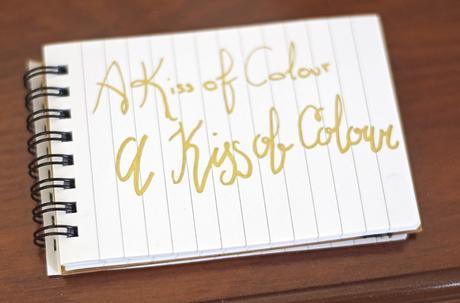 A Kiss of Colour
a Kiss of Colour